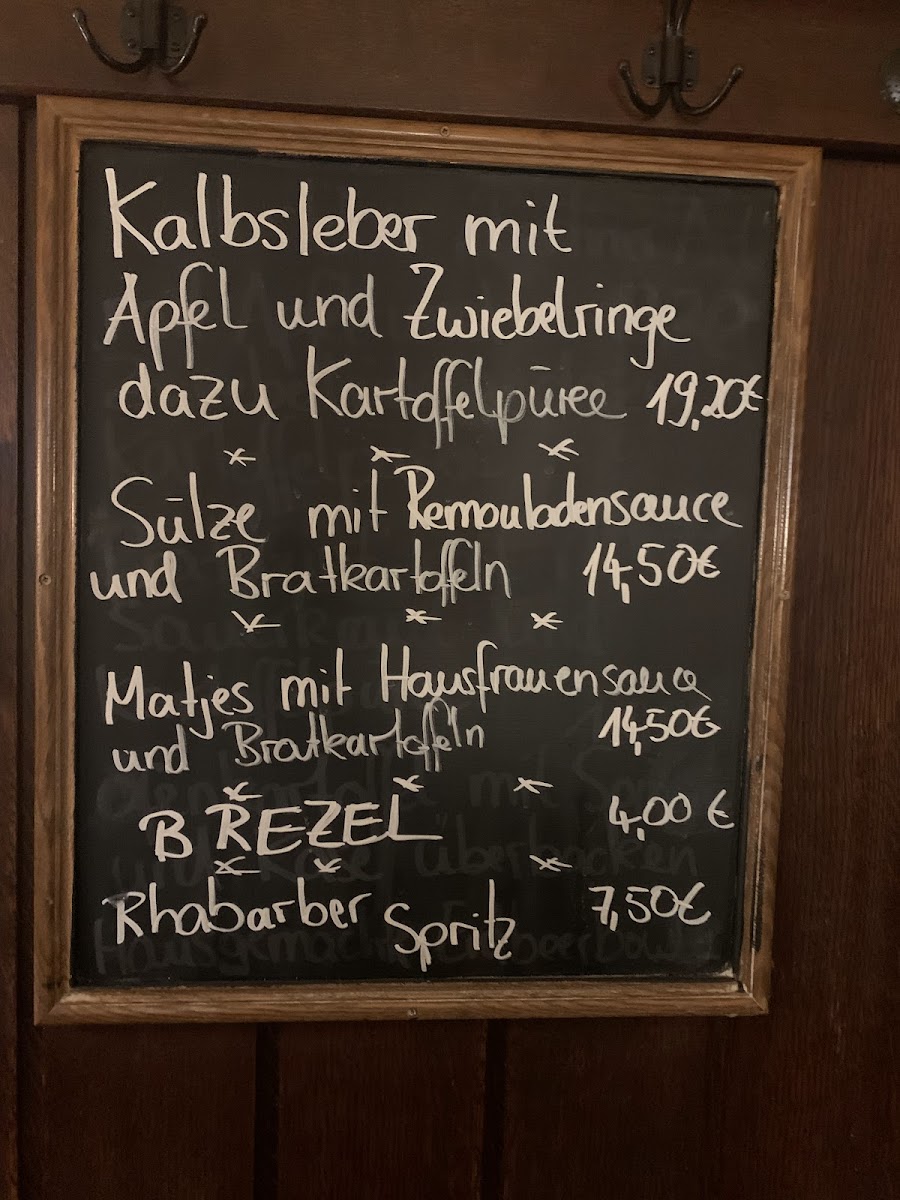 Kalbsleber mit
Apfel und Zwiebelringe
dazu Kartoffelpüree 19,20€
Sülze mit Remouladensauce
und Bratkartoffeln 14,50€
Matjes mit Hausfrauensauce
und Bratkartoffeln 14,50€
BREZEL 4,00 €
Rhabarber Spritz 7,50€